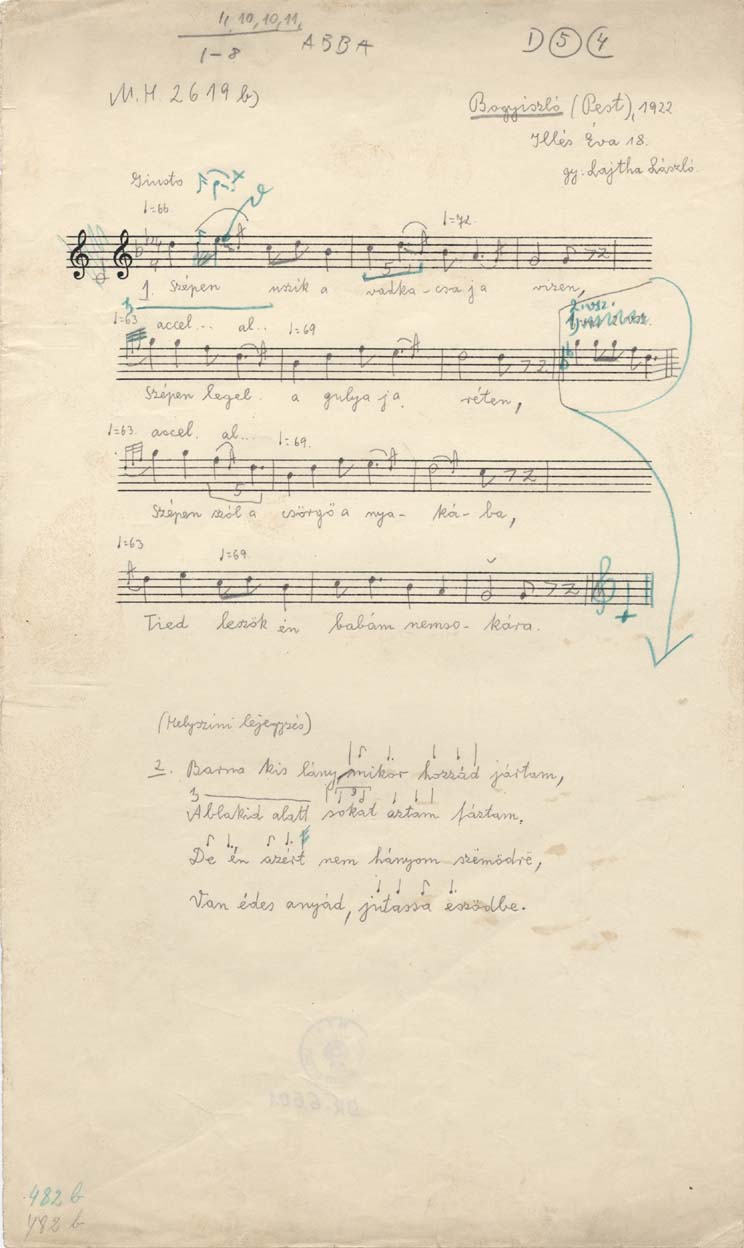 11, 10, 10, 11,
1-8 ABBA D 5 4
M.H. 2619 b)
Bogyiszló (Pest), 1922
Illés Éva 18.
gy. Lajtha László.
Giusto
♩=66 ♩=72.
1. Szépen uszik a vadka-csa ja vizen,
♩=63 accel... al.. ♩=69 2. vsz.
Szépen legel a gulya ja réten,
♩=63. accel. al... ♩=69.
5
Szépen szól a csörgő a nya- ká- ba,
♩=63 ♩=69.
Tied leszök én babám nemso- kára.
(Helyszíni lejegyzés)
2. Barna kis lány, mikor hozzád jártam,
Ablakid alatt sokat áztam fáztam,
De én azért nem hányom szëmödrë,
Van édes anyád, jutassa eszödbe.
482 b
482 b